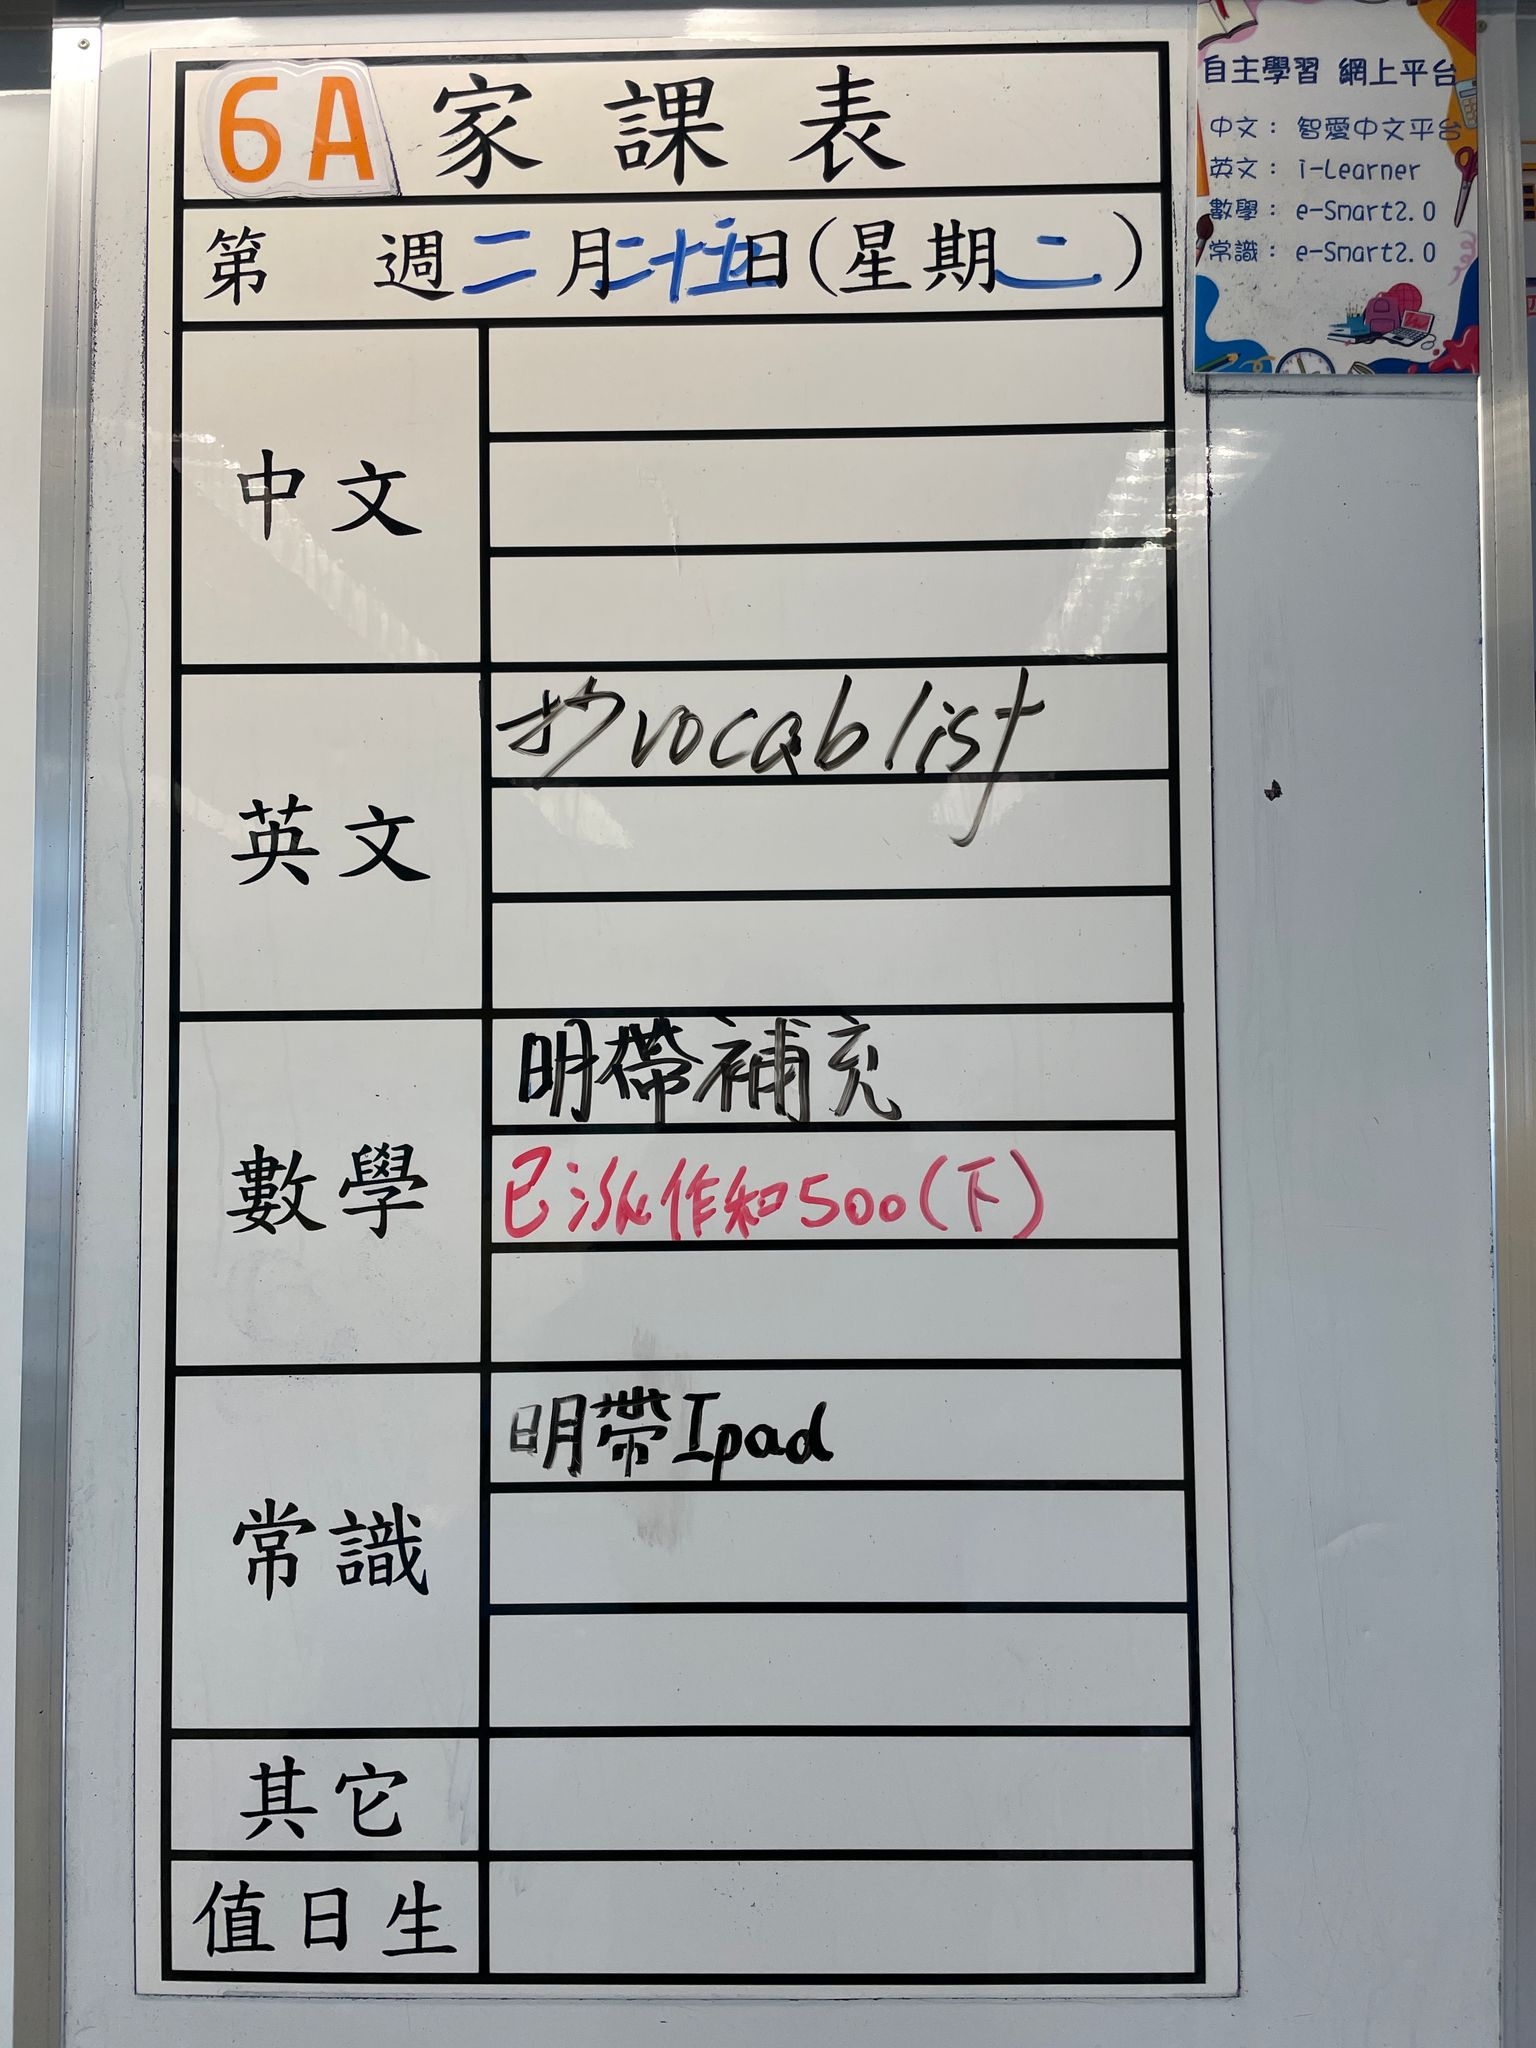 6A 家課表
第 週二月二十五日(星期二)
中文
英文
抄vocab list
數學
明帶補充
已派作知500(下)
常識
明帶Ipad
其它
值日生
自主學習 網上平台
中文： 智愛中文平台
英文： i-Learner
數學： e-Smart2.0
常識： e-Smart2.0